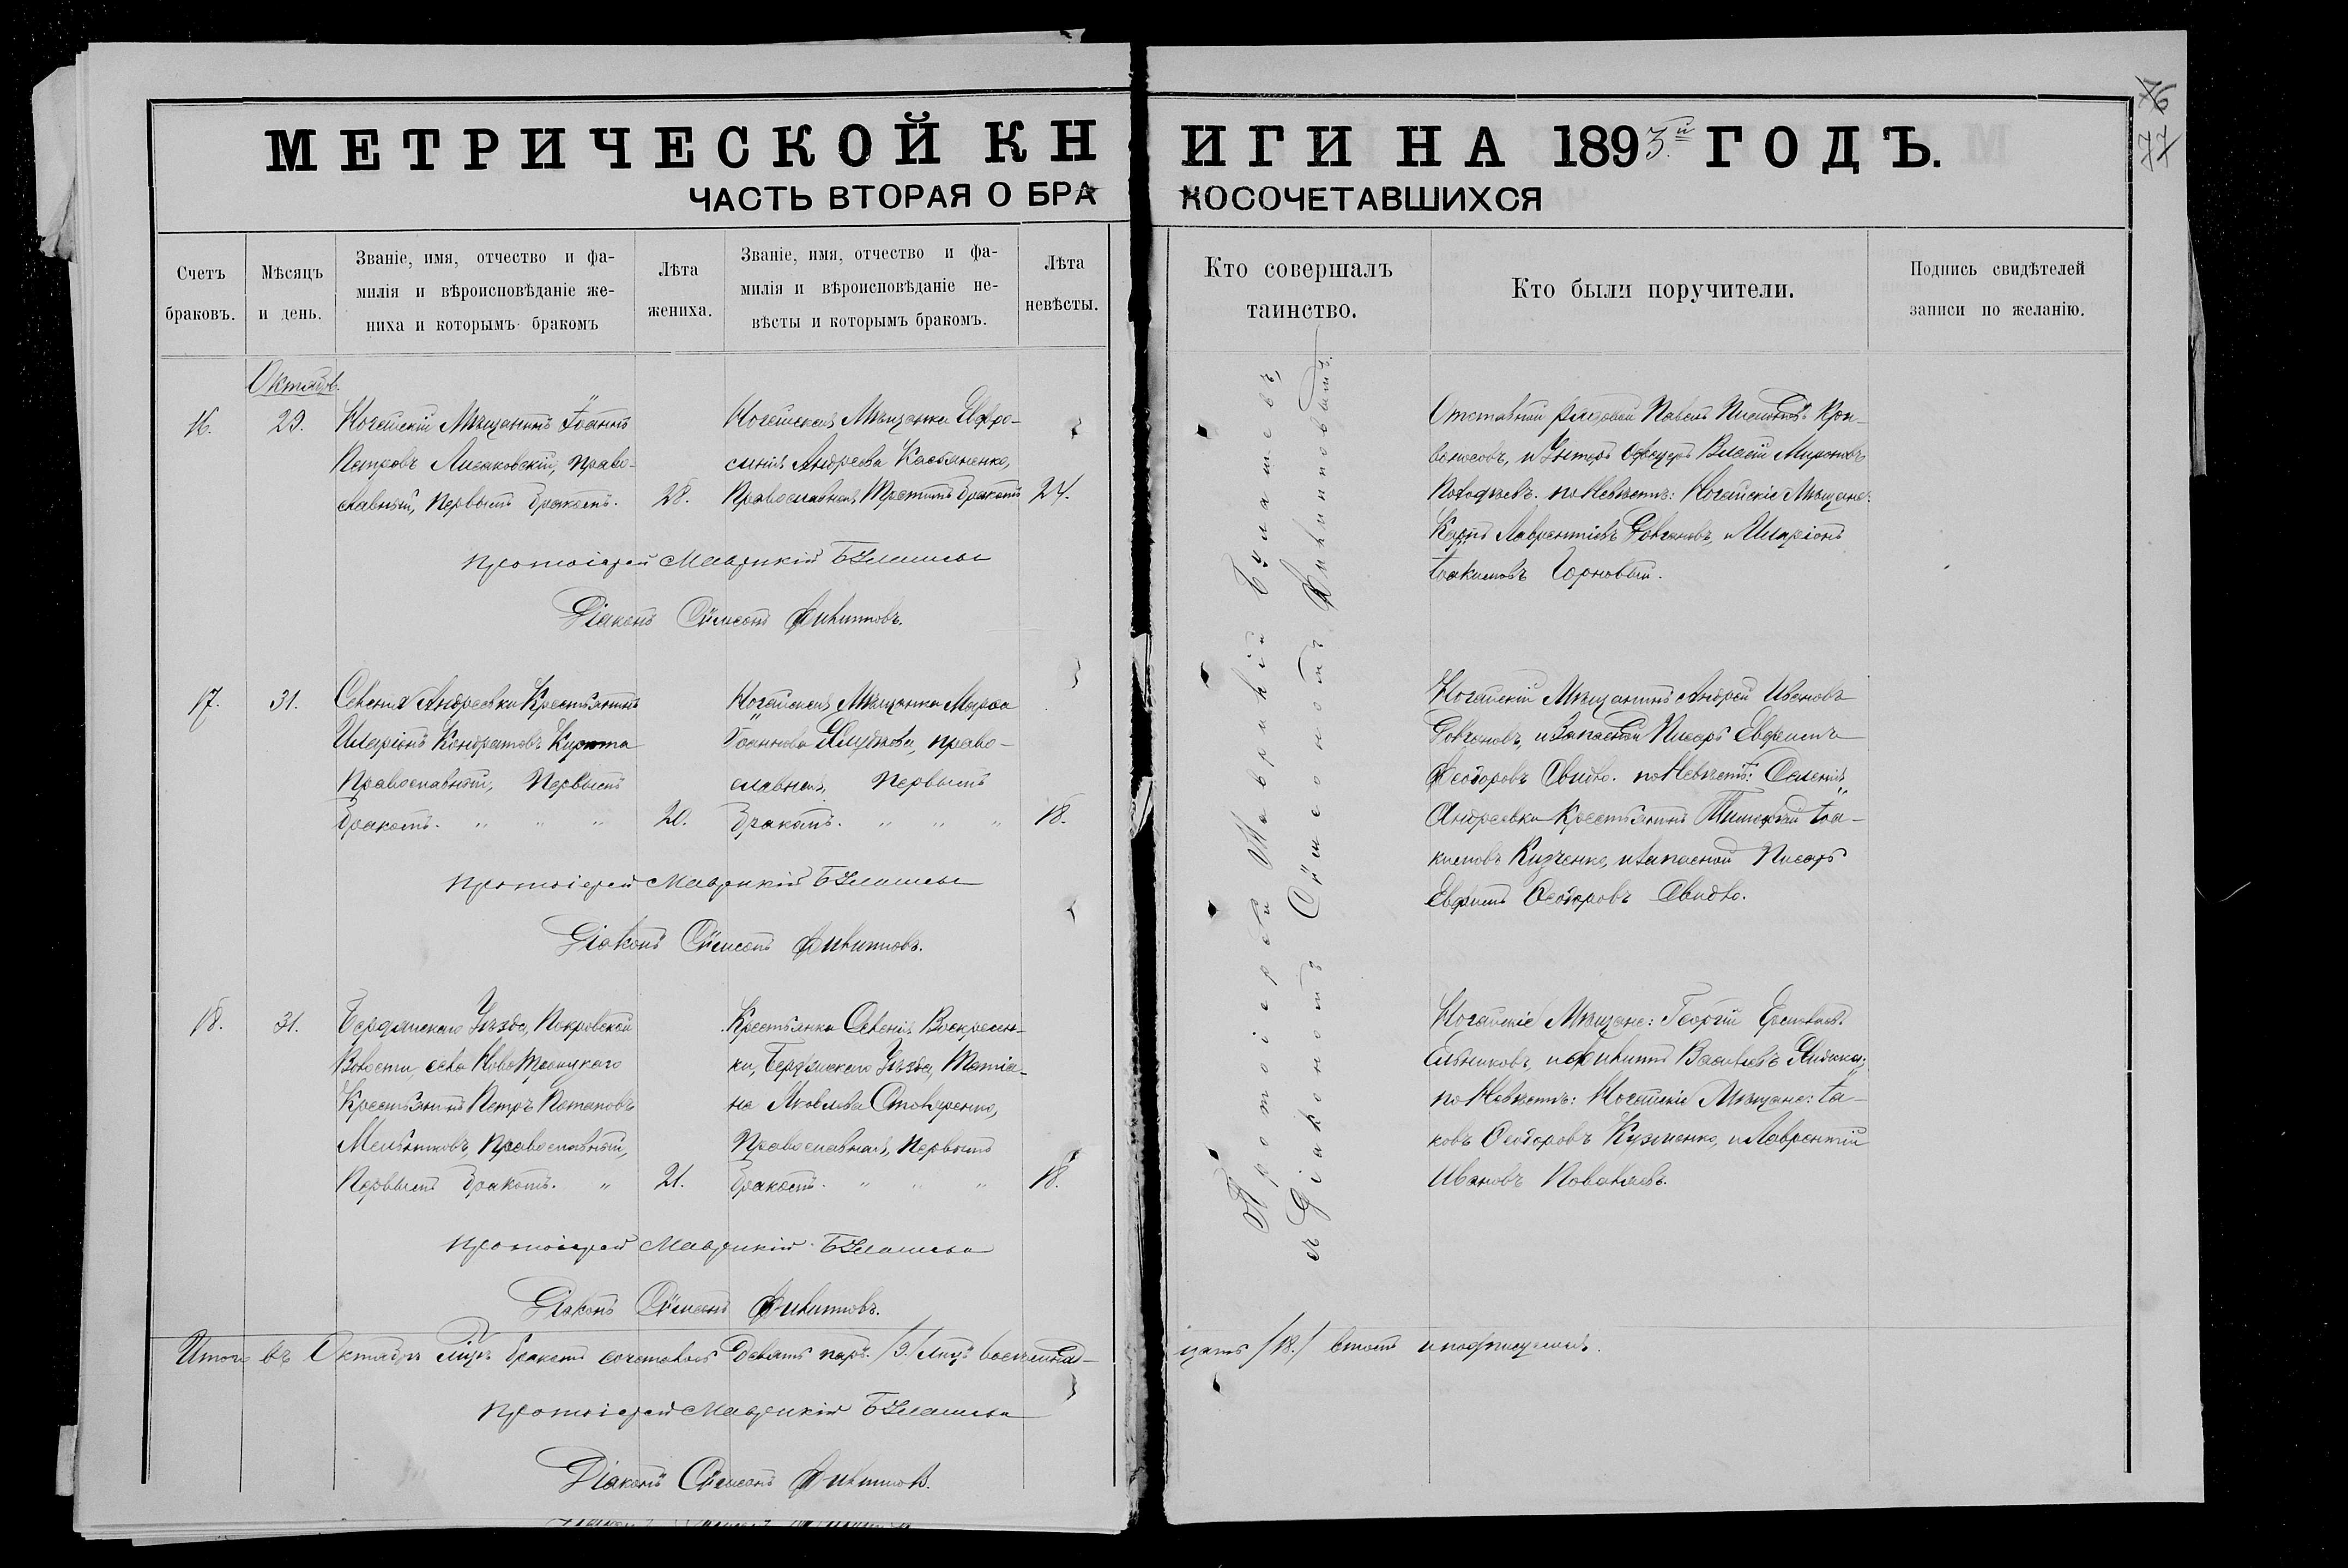 76
77
МЕТРИЧЕСКОЙ КНИГИ НА 1893й ГОДЪ.
ЧАСТЬ ВТОРАЯ О БРАКОСОЧЕТАВШИХСЯ
Счетъ браковъ.
Мѣсяцъ и день.
Званіе, имя, отчество и фа-
милія и вѣроисповѣданіе же-
ниха и которымъ бракомъ
Лѣта жениха.
Званіе, имя, отчество и фа-
милія и вѣроисповѣданіе не-
вѣсты и которымъ бракомъ.
Лѣта невѣсты.
Кто совершалъ таинство.
Кто были поручители.
Подпись свидѣтелей
записи по желанію.
Октябрь.
16.
29.
Ногайскій Мѣщанинъ Іоаннъ
Петровъ Лисаковскій, право-
славный, первымъ бракомъ.
28.
Ногайская Мѣщанка Евфро-
синія Андреева Касьяненко,
Православная Третимъ бракомъ
24.
Отставной рядовой Павелъ Кри-
воносовъ, и Унтеръ Офицеръ Власій Мироновъ
по Невѣстѣ: Ногайскіе Мѣщане:
Карпъ Лаврентіевъ Довгановъ, и Иларіонъ
Іоакимовъ Горновый.
Протоіерей Маврикій Булашевъ
Діаконъ Сѵмеонъ Филипповъ.
17.
31.
Селенія Андреевки Крестьянинъ
Иларіонъ Кондратовъ
Православный, Первымъ
бракомъ. " " "
20.
Ногайская Мѣщанка Марѳа
Іоаннова право-
славная, первымъ
бракомъ. " " "
18.
Ногайскій Мѣщанинъ Андрей Ивановъ
Довгановъ, и Запасный Писарь Евфимъ
Ѳеодоровъ Свидло. по Невѣстѣ: Селенія
Андреевки Крестьянинъ Тимофей Іоа-
кимовъ и запасной Писарь
Евфимъ Ѳеодоровъ Свидло.
Протоіерей Маврикій Булашевъ
Діаконъ Сѵмеонъ Филипповъ.
18.
31.
Бердянскаго Уѣзда, Покровской
Волости, села НовоТроицкаго
Крестьянинъ Петръ Потаповъ
Мельниковъ, православный,
Первымъ бракомъ. "
21.
Крестьянка Селенія Воскресен-
ки, Бердянскаго Уѣзда, Татіа-
на Яковлева Столяренко,
Православная, Первымъ
бракомъ. " " "
18.
Ногайскіе Мѣщане: Георгій
и Филиппъ Васильевъ
по Невѣстѣ: Ногайскіе Мѣщане: Іа-
ковъ Ѳеодоровъ Кузменко, и Лаврентій
Ивановъ Поваляевъ.
Протоіерей Маврикій Булашевъ
Діаконъ Сѵмеонъ Филипповъ.
Протоіерей Маврикій Булашевъ,
съ Діакономъ Сѵмеономъ Филипповымъ.
Итого въ Октябрѣ мцѣ бракомъ сочеталось Девять паръ /9./ лицъ восемнад-
цать /18./ въ томъ и подписуемся.
Протоіерей Маврикій Булашевъ
Діаконъ Сѵмеонъ Филипповъ.